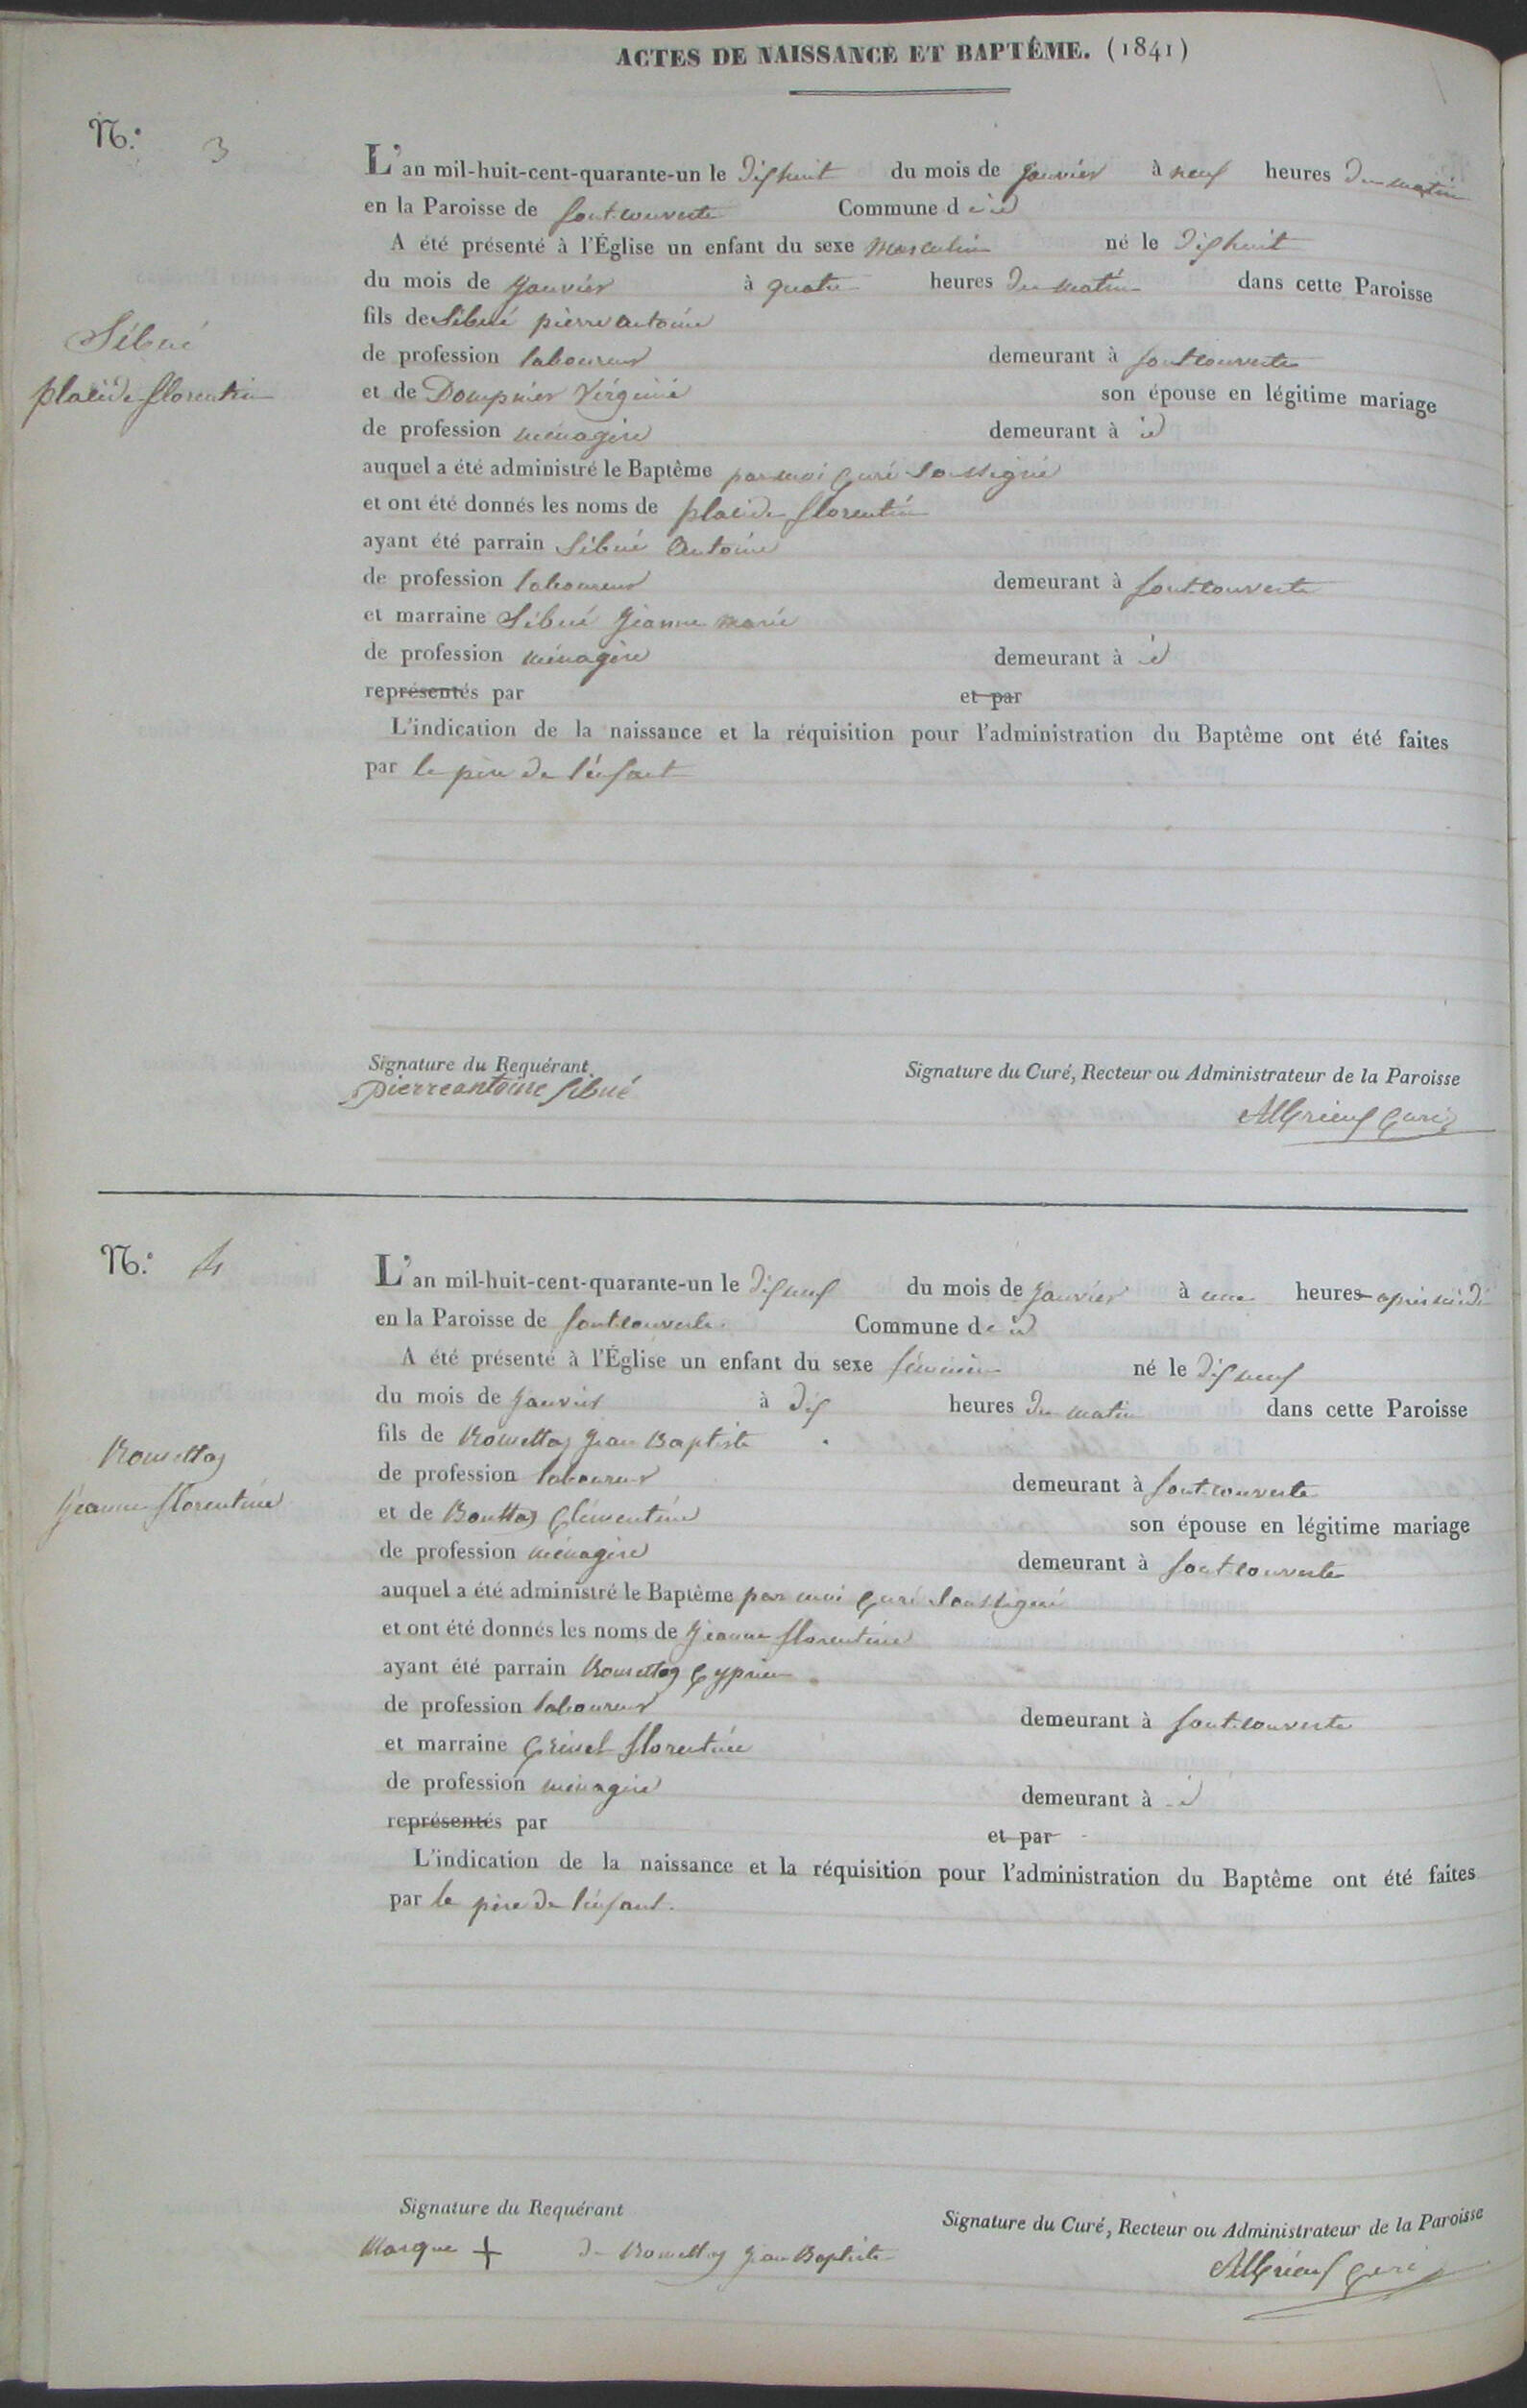 ACTES DE NAISSANCE ET BAPTÊME. (1841)
N.° 3
L'an mil-huit-cent-quarante-un le dishuit du mois de janvier à neuf heures du matin
en la Paroisse de fontcouverte Commune d e id
A été présenté à l'Église un enfant du sexe masculin né le dishuit
du mois de janvier à quatre heures du matin dans cette Paroisse
fils de Sibué pierre antoine
Sibué
de profession laboureur demeurant à fontcouverte
placide florentin
et de Dompnier Virginie son épouse en légitime mariage
de profession ménagère demeurant à id
auquel a été administré le Baptême par moi Curé Soussigné
et ont été donnés les noms de placide florentin
ayant été parrain Sibué Antoine
de profession laboureur demeurant à fontcouverte
et marraine Sibué Jeanne marie
de profession ménagère demeurant à id
représentés par et par
L'indication de la naissance et la réquisition pour l'administration du Baptême ont été faites
par le père de l'enfant
Signature du Requérant Signature du Curé, Recteur ou Administrateur de la Paroisse
pierreantoine Sibué
Curé
N.° 4
L'an mil-huit-cent-quarante-un le disneuf du mois de janvier à une heures après midi
en la Paroisse de fontcouverte Commune d e id
A été présenté à l'Église un enfant du sexe féminin né le disneuf
du mois de janvier à dis heures du matin dans cette Paroisse
fils de Rousettaz Jean Baptiste
Rousettaz
de profession laboureur demeurant à fontcouverte
Jeanne florentine
et de Bouttaz Clémentine son épouse en légitime mariage
de profession ménagère demeurant à fontcouverte
auquel a été administré le Baptême par moi Curé Soussigné
et ont été donnés les noms de Jeanne florentine
ayant été parrain Rousettaz Cyprien
de profession laboureur demeurant à fontcouverte
et marraine florentine
de profession ménagère demeurant à id
représentés par et par
L'indication de la naissance et la réquisition pour l'administration du Baptême ont été faites
par le père de l'enfant.
Signature du Requérant Signature du Curé, Recteur ou Administrateur de la Paroisse
Marque + de Rousettaz Jean Baptiste
Curé